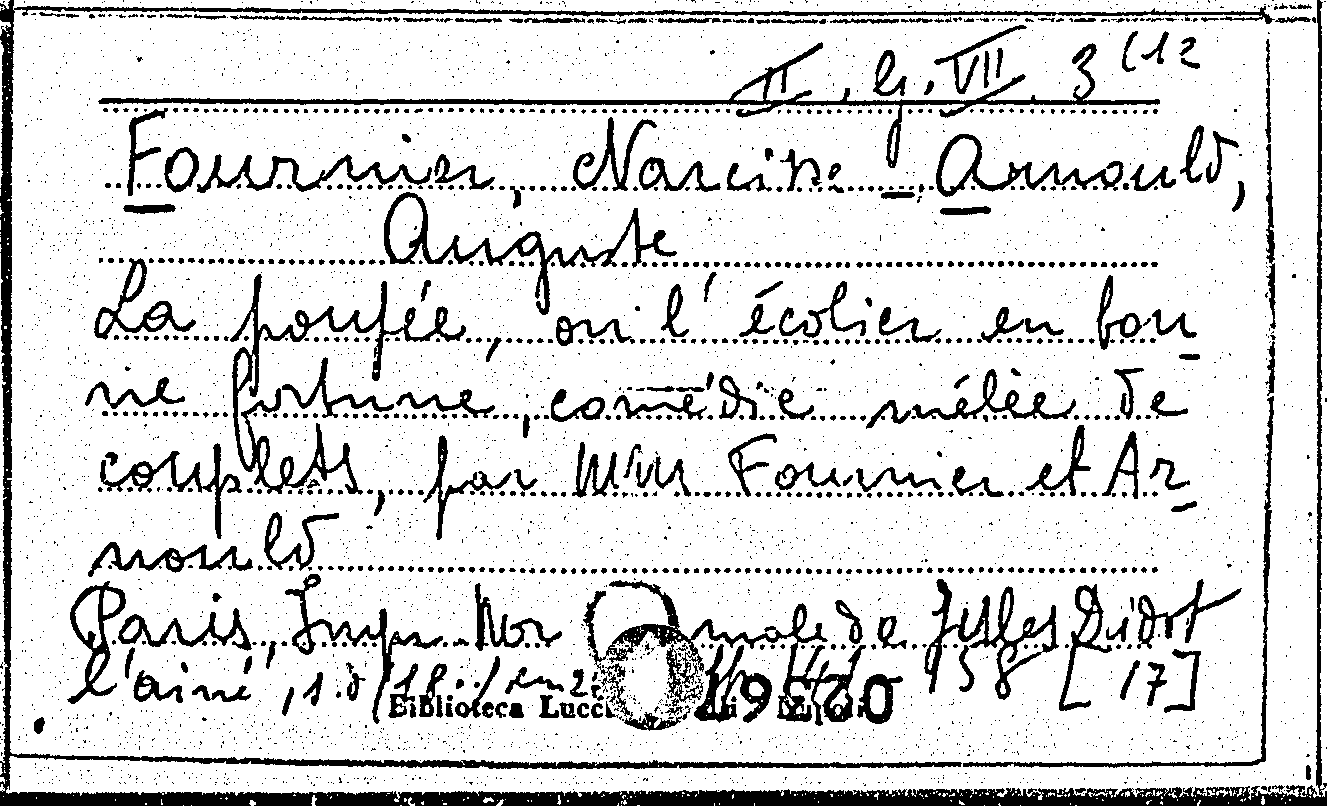 II. G. VII. 3 (12
Fournier, Narcisse - Arnould,
Auguste
La poupée, ou l'écolier en bon
ne fortune, comédie mêlée de
couplets, par MM Fournier et Ar
nould
Paris, Imp. Nor male de Jules Didot
l'ainé, 158 [17]
Biblioteca Lucch